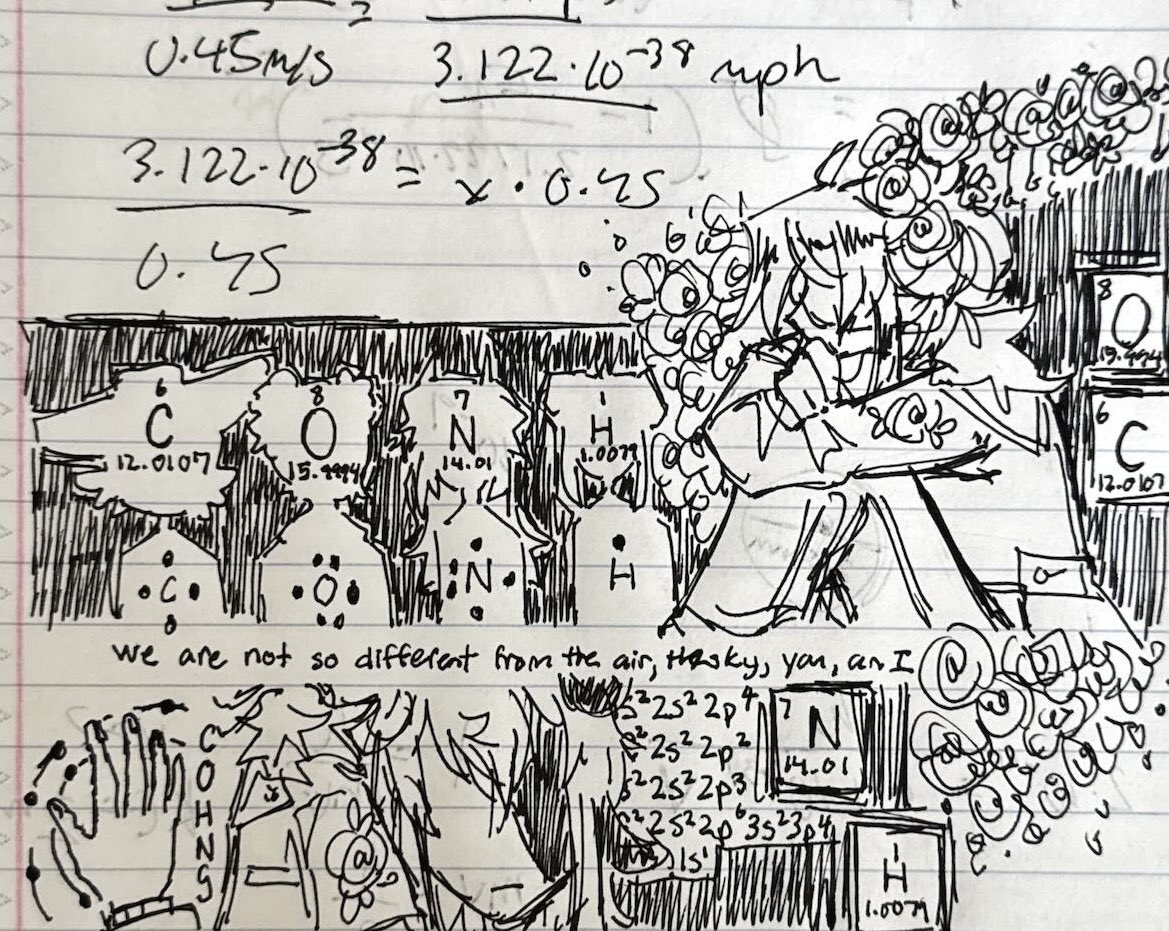 0.45 m/s 3.122·10⁻³⁸ mph
3.122·10⁻³⁸ = x · 0.45
0.45
8
O
15.9994
6
C
12.0107
8
O
15.9994
7
N
14.01
1
H
1.0079
6
C
12.0107
C O N H
we are not so different from the air, the sky, you, an I
C
O
H
N
S
s² 2s² 2p⁴
s² 2s² 2p²
s² 2s² 2p³
s² 2s² 2p⁶ 3s² 3p⁴
1s¹
7
N
14.01
1
H
1.0079